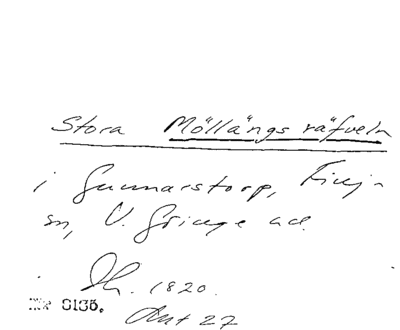 Stora Möllängs räfveln
i Gunnarstorp, Finja
sn, V. Göinge hd.
Dh. 1820.
Ant 27